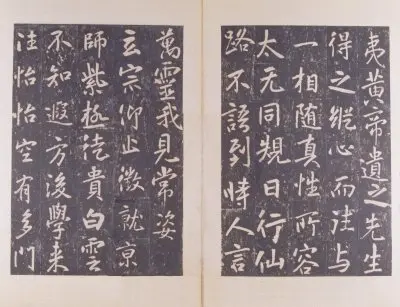 夷黄帝遺之先生
得之縱心而往与
一相随真性所容
太无同規日行仙
路不語到時人言
萬靈我見常姿
玄宗仰止徵就京
師紫極徒貴白雲
不知遐方後學来
往怡怡空有多門